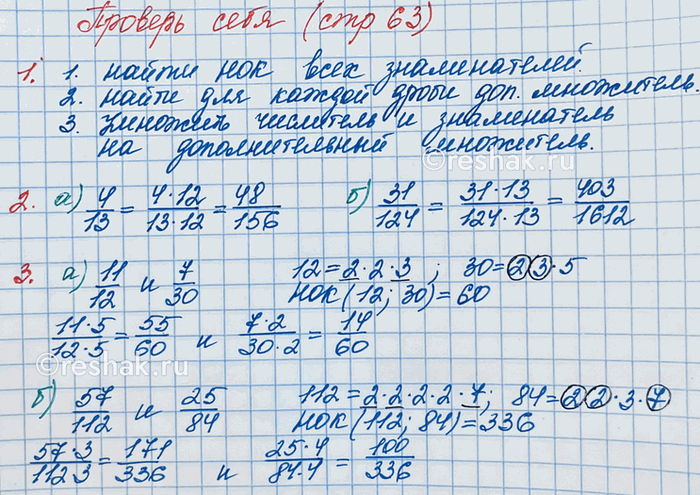 Проверь себя (стр 63)
1. 1. найти нок всех знаменателей.
2. найти для каждой дроби доп. множитель.
3. Умножить числитель и знаменатель
на дополнительный множитель.
©reshak.ru
2. а) 4/13 = 4·12/13·12 = 48/156 б) 31/124 = 31·13/124·13 = 403/1612
3. а) 11/12 и 7/30 12=2·2·3 ; 30=2·3·5
НОК(12; 30)=60
11·5/12·5 = 55/60 и 7·2/30·2 = 14/60
©reshak.ru
б) 57/112 и 25/84 112=2·2·2·2·7; 84=2·2·3·7
НОК(112; 84)=336
57·3/112·3 = 171/336 и 25·4/84·4 = 100/336